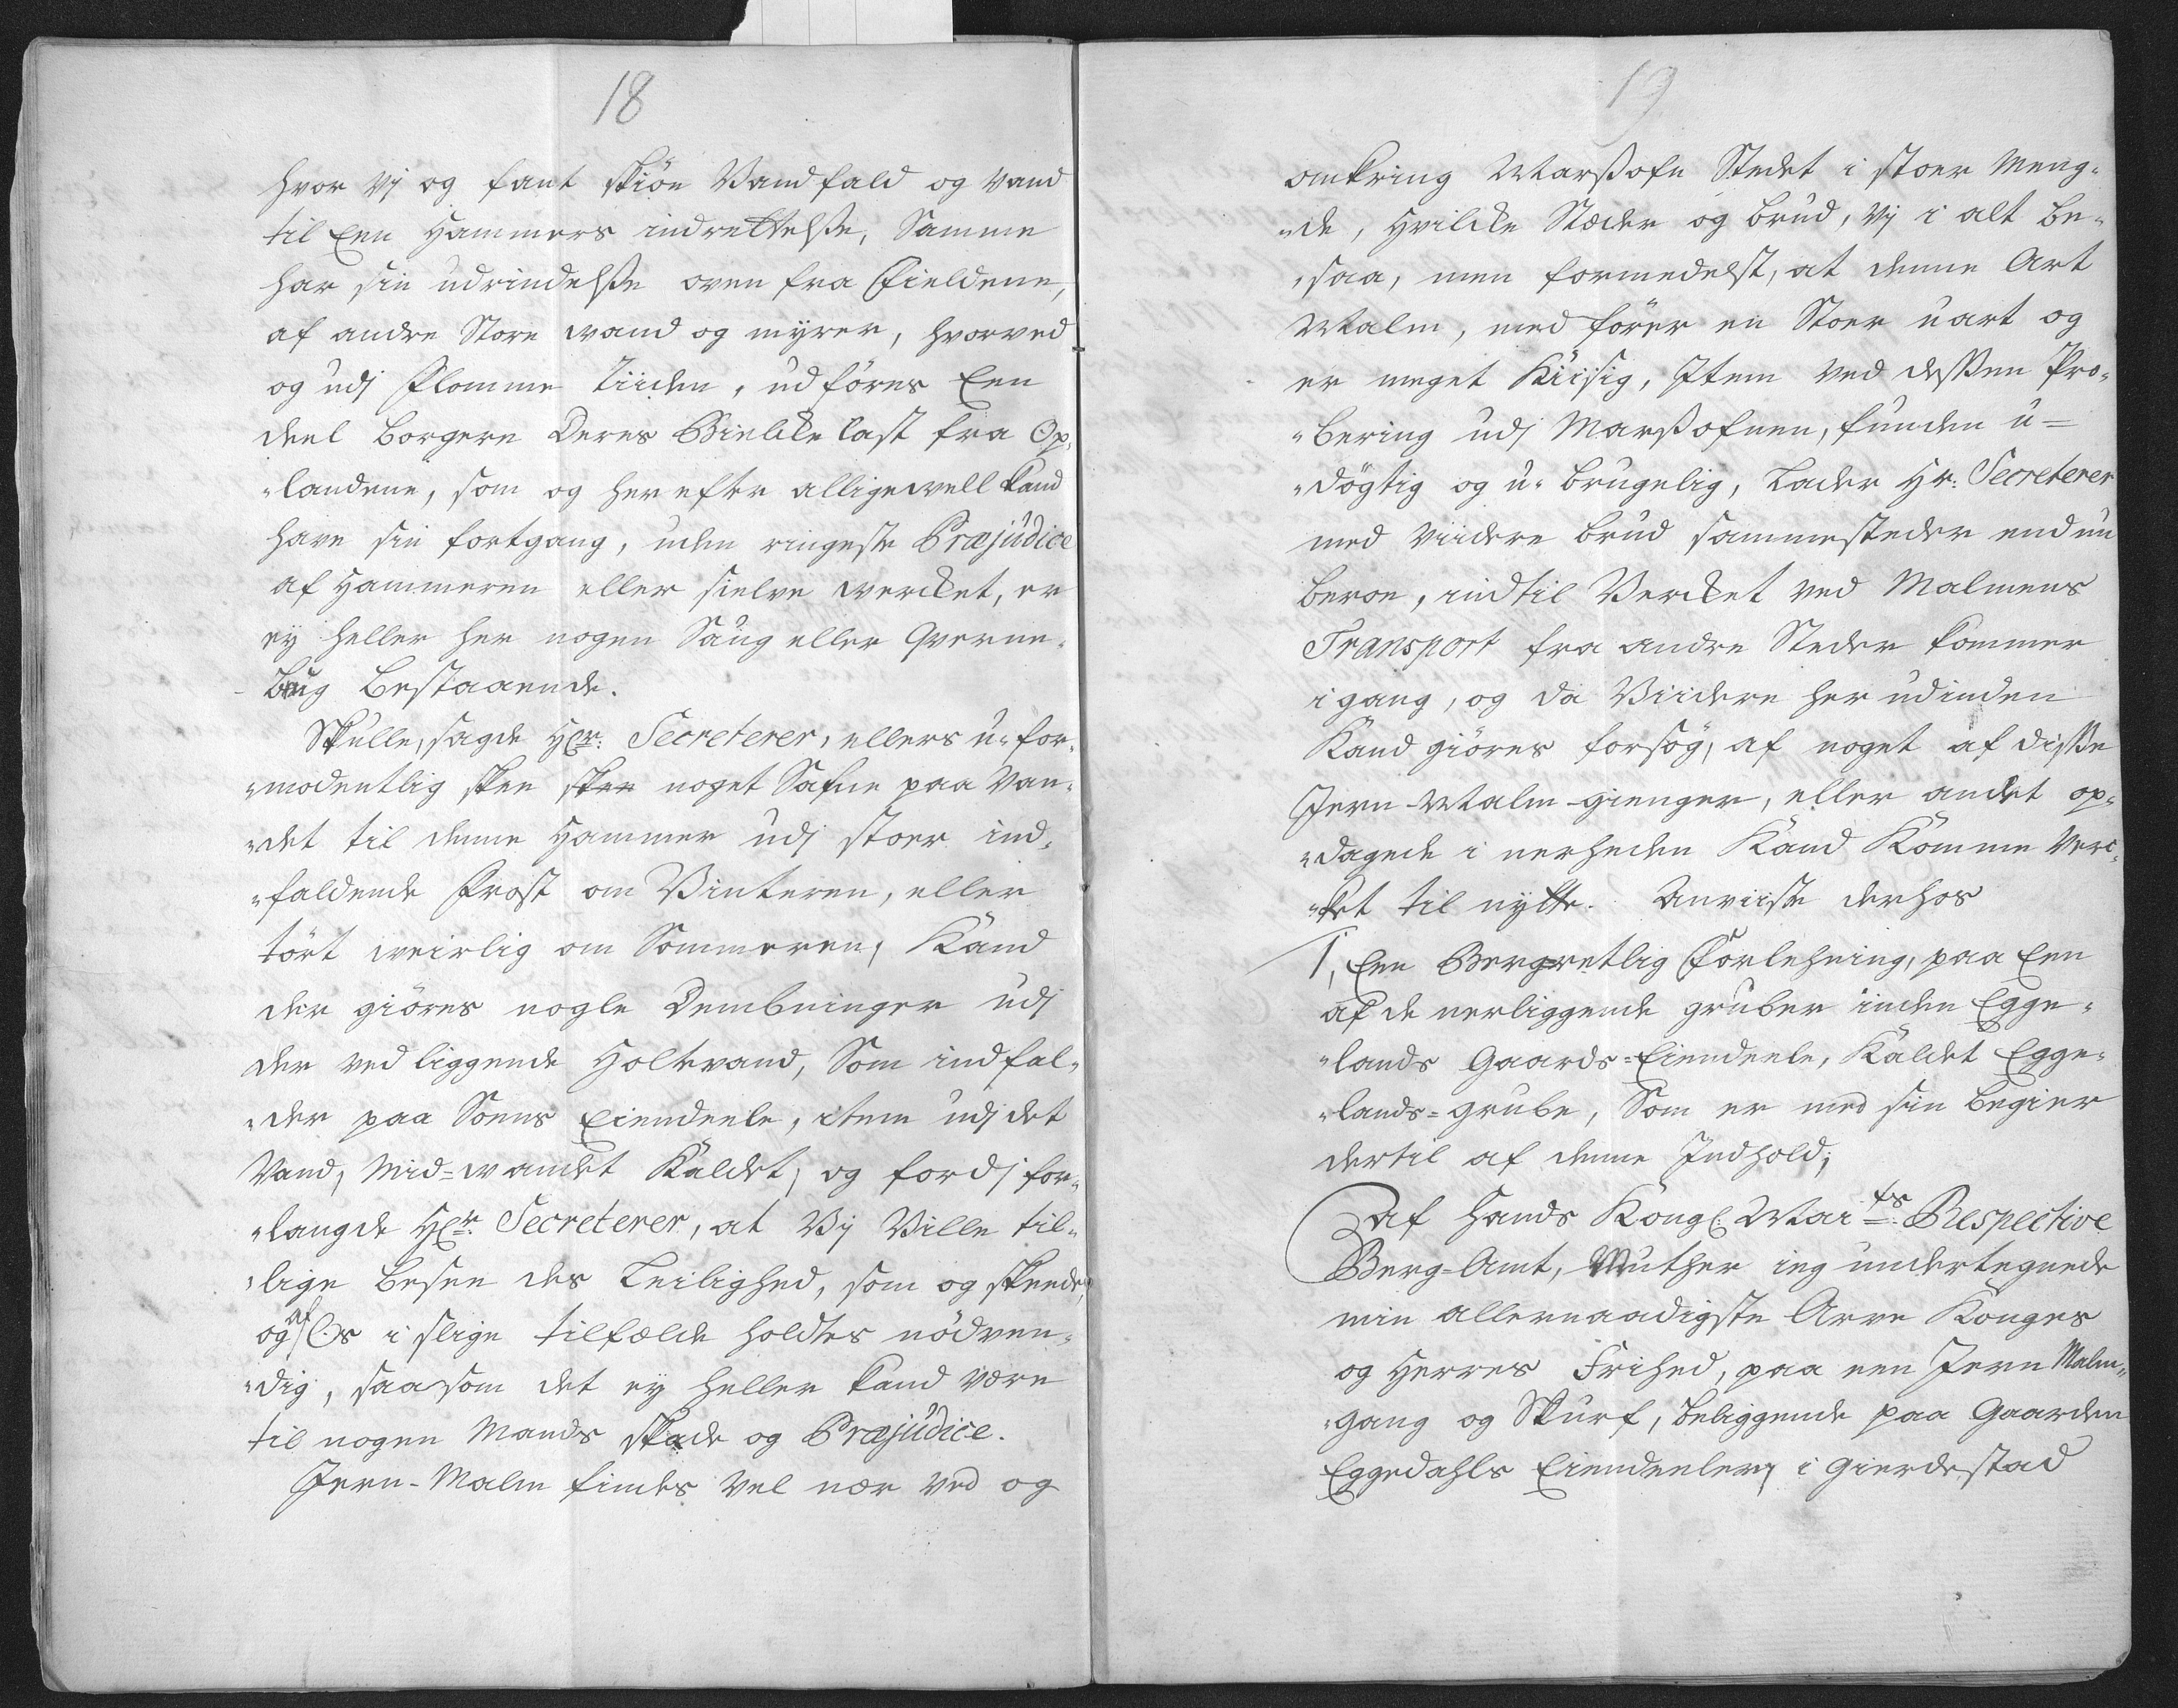 18
hvor vj og fant skiøn Vandfald og vand
til Een Hammers indrettelsse, Samme
har sin udrindelsse oven fra Fieldene,
af andre Store vand og myrer, hvorved
og udj Flomme Tiiden, udføres Een
deel borgere Deres Bielcke last fra Op,
"landene, som og herefter alligewell kand
have sin fortgang, uden ringeste Præjudice
af Hammeren eller sielve vercket, er
ey heller her nogen Saug eller Qverne,
brug bestaaende.
Skulle, sagde Hr: Secreterer, ellers u=for,
"modentlig skee skee noget Safne paa Van,
"det til denne Hammer udj stoer ind,
"faldende Frost om Vinteren, eller
tört veirlig om Sommeren, Kand
der giöres nogle Dembninger udj
der ved liggende Holtevand, Som indfal,
"der paa Soens Eiendeele, item udj det
Vand, Mid=vandet Kaldet, og fordj for,
"langde Hr: Secreterer, at Vij Ville til,
"lige besee des Leilighed, som og skeede,
og af Os i slige tilfælde holdtes nödven,
"dig, saasom det ey heller kand være
til nogen Mands skade og Præjudice.
Jern-Malm findes vel nær ved og
19
omkring Marssofn Stedet i stoer Meng,
"de, Hvilcke Stæder og brud, vj i alt be,
"saa, men formedelst, at denne Art
Malm, medfører en Stoer uart og
er meget Kiisig, Item ved dessen Pro,
"bering udj Marssofnen, funden u=
"døgtig og u=brugelig, Lader Hr: Secreterer
med viidere brud sammesteder endnu
beroe, indtil Vercket ved Malmens
Transport fra andre Steder kommer
i gang, og da Viidere her udinden
Kand giöres forsög, af noget af disse
Jern-Malm-gienger, eller andet op,
"dagede i nerheden Kand Komme Verc,
"ket til nytte. Anviiste derhos
1, Een Bergretlig Forlehning, paa Een
af de nerliggende gruber inden Egge,
"lands Gaards=Eiendeele, Kaldet Egge,
"lands=grube, Som er med sin begier
dertil af denne Indhold,
Af Hands Kongl: Mai ts: Respective
Berg=Amt, Muther ieg undertegnede
min allernaadigste Arve Konges
og Herres Frihed, paa een Jern Malm,
"gang og Skurf, beliggende paa Gaarden
Eggedahls Eiendeeler i Gierdestad